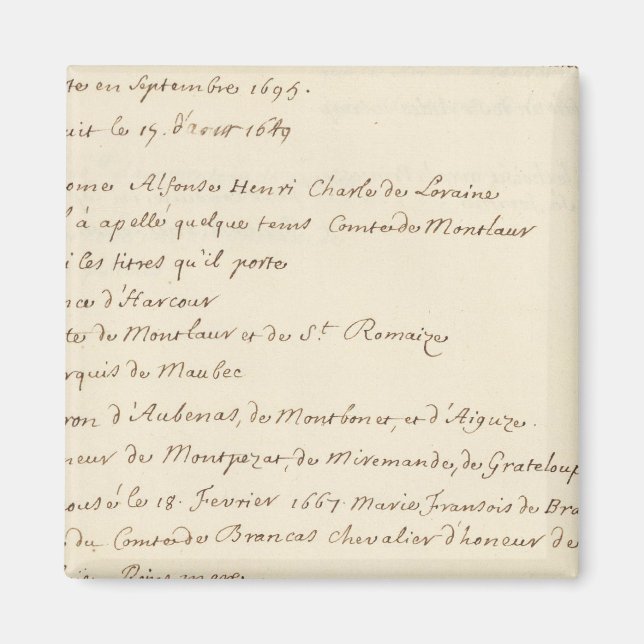 te en Septembre 1695.
uit le 15. d'aoust 1649
ome Alfonse Henri Charle de Loraine
l à apellé quelque tems Comte de Montlaur
i les titres qu'il porte
nce d'Harcour
te de Montlaur et de S.t Romaize
rquis de Maubec
ron d'Aubenas, de Montbonet, et d'Aiguze.
neur de Montpezat, de Miremande, de Grateloup
ousé le 18. Fevrier 1667. Marie Fransois de Bra
du Comte de Brancas chevalier d'honeur de